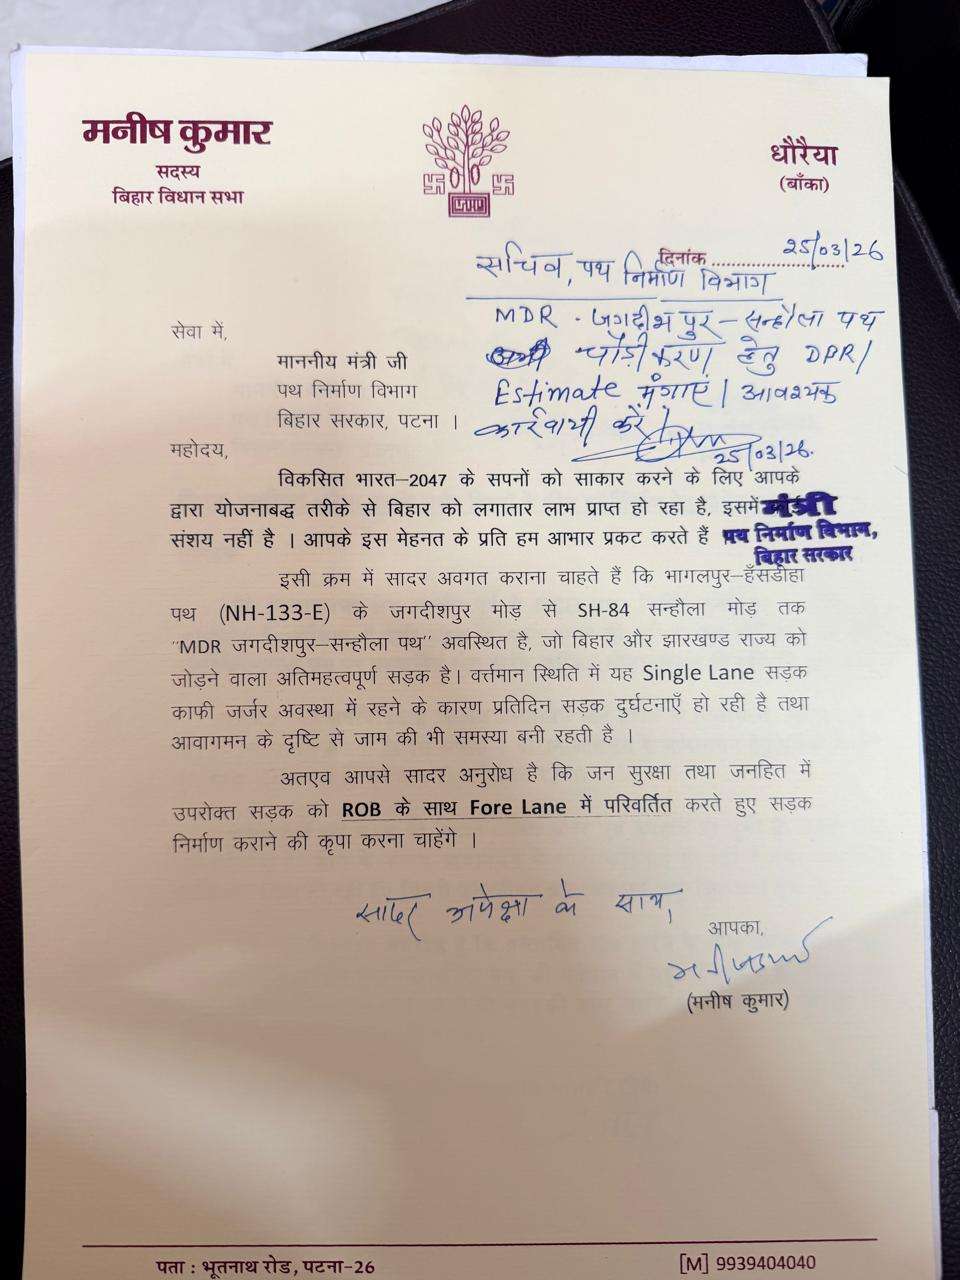 मनीष कुमार
सदस्य
बिहार विधान सभा
धौरैया
(बाँका)
दिनांक 25/03/26
सचिव, पथ निर्माण विभाग
MDR - जगदीशपुर - सन्हौला पथ
चौड़ीकरण हेतु DPR/
Estimate मंगाएं। आवश्यक
कार्रवायी करें।
25/03/26.
मंत्री
पथ निर्माण विभाग,
बिहार सरकार
सेवा में,
माननीय मंत्री जी
पथ निर्माण विभाग
बिहार सरकार, पटना ।
महोदय,
विकसित भारत–2047 के सपनों को साकार करने के लिए आपके
द्वारा योजनाबद्ध तरीके से बिहार को लगातार लाभ प्राप्त हो रहा है, इसमें
संशय नहीं है । आपके इस मेहनत के प्रति हम आभार प्रकट करते हैं
इसी क्रम में सादर अवगत कराना चाहते हैं कि भागलपुर–हँसडीहा
पथ (NH-133-E) के जगदीशपुर मोड़ से SH-84 सन्हौला मोड़ तक
"MDR जगदीशपुर–सन्हौला पथ" अवस्थित है, जो बिहार और झारखण्ड राज्य को
जोड़ने वाला अतिमहत्वपूर्ण सड़क है। वर्त्तमान स्थिति में यह Single Lane सड़क
काफी जर्जर अवस्था में रहने के कारण प्रतिदिन सड़क दुर्घटनाएँ हो रही है तथा
आवागमन के दृष्टि से जाम की भी समस्या बनी रहती है ।
अतएव आपसे सादर अनुरोध है कि जन सुरक्षा तथा जनहित में
उपरोक्त सड़क को ROB के साथ Fore Lane में परिवर्तित करते हुए सड़क
निर्माण कराने की कृपा करना चाहेंगे ।
सादर अपेक्षा के साथ,
आपका,
(मनीष कुमार)
पता : भूतनाथ रोड, पटना-26
[M] 9939404040